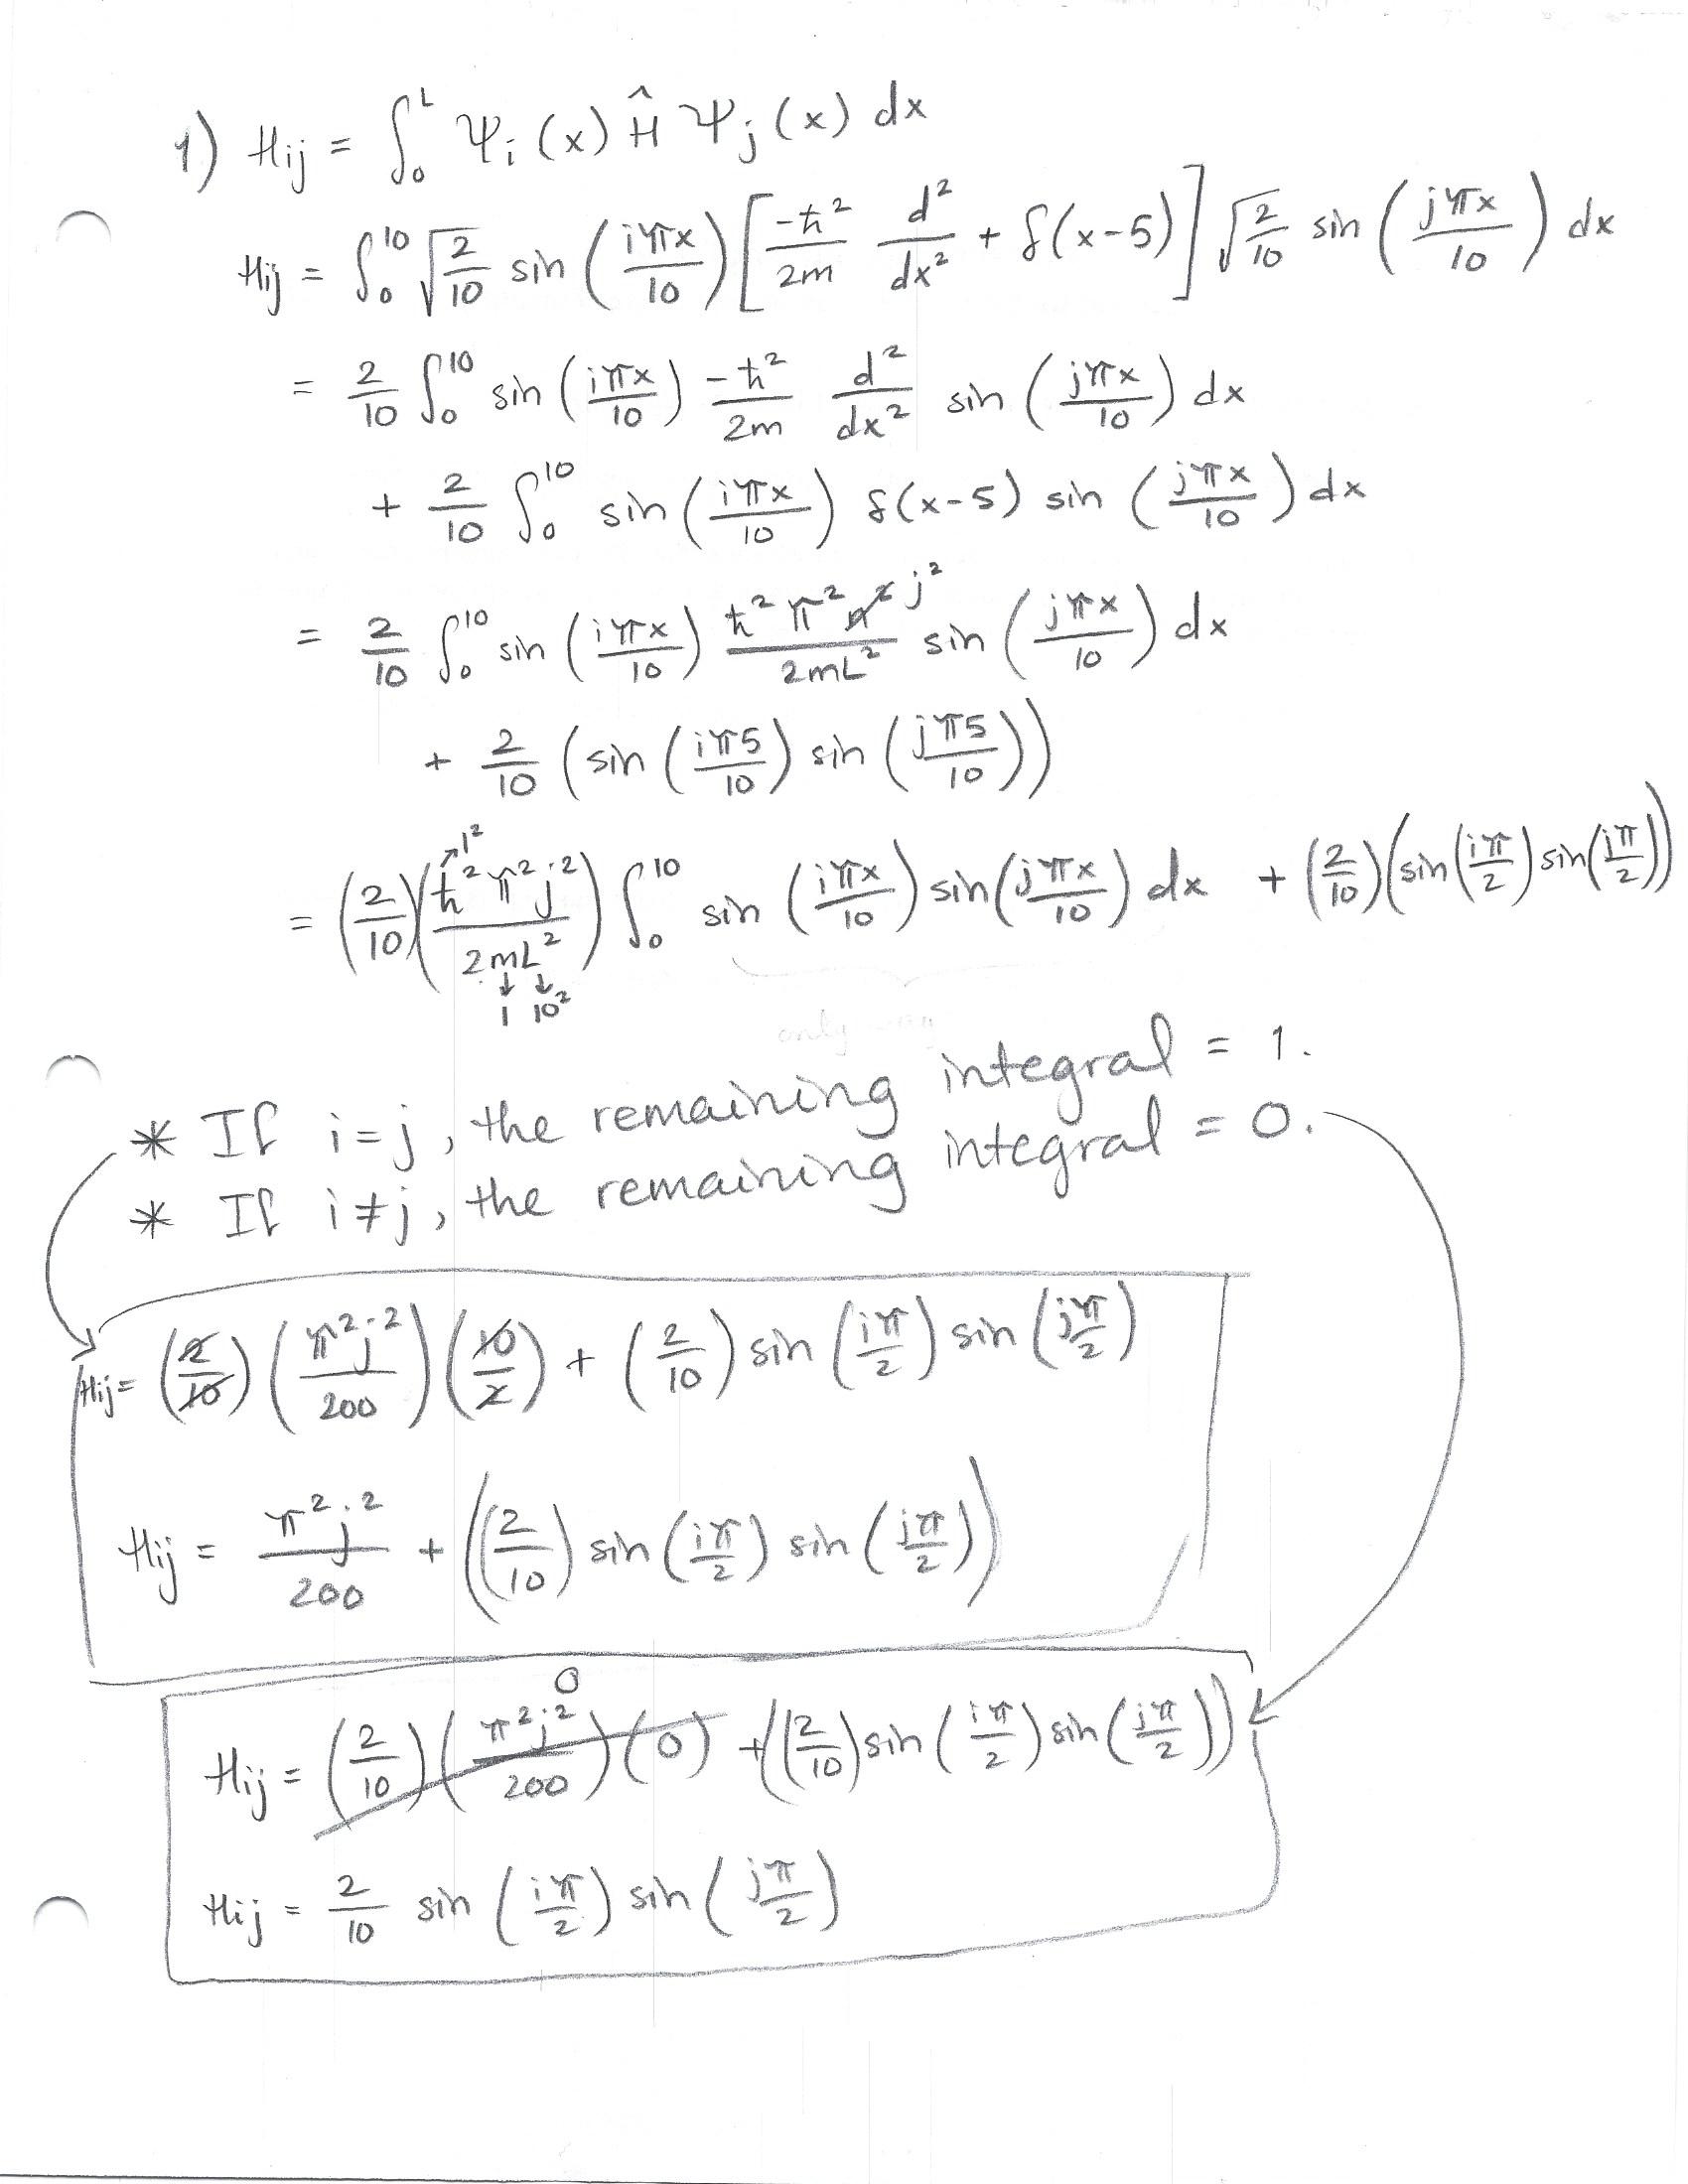 1) Hij = ∫₀ᴸ Ψi (x) Ĥ Ψj (x) dx
Hij = ∫₀¹⁰ √(2/10) sin (iπx/10) [-ħ²/2m d²/dx² + δ(x-5)] √(2/10) sin (jπx/10) dx
= 2/10 ∫₀¹⁰ sin (iπx/10) -ħ²/2m d²/dx² sin (jπx/10) dx
+ 2/10 ∫₀¹⁰ sin (iπx/10) δ(x-5) sin (jπx/10) dx
= 2/10 ∫₀¹⁰ sin (iπx/10) ħ²π²j²/2mL² sin (jπx/10) dx
+ 2/10 (sin (iπ5/10) sin (jπ5/10))
= (2/10)(ħ²π²j²/2mL²) ∫₀¹⁰ sin (iπx/10) sin (jπx/10) dx + (2/10)(sin(iπ/2) sin(jπ/2))
↗1² ↓1 ↓10²
* If i=j, the remaining integral = 1.
* If i≠j, the remaining integral = 0.
Hij = (2/10) (π²j²/200) (10/2) + (2/10) sin (iπ/2) sin (jπ/2)
Hij = π²j²/200 + ((2/10) sin (iπ/2) sin (jπ/2))
0
Hij = (2/10) (π²j²/200) (0) + ((2/10) sin (iπ/2) sin (jπ/2))
Hij = 2/10 sin (iπ/2) sin (jπ/2)